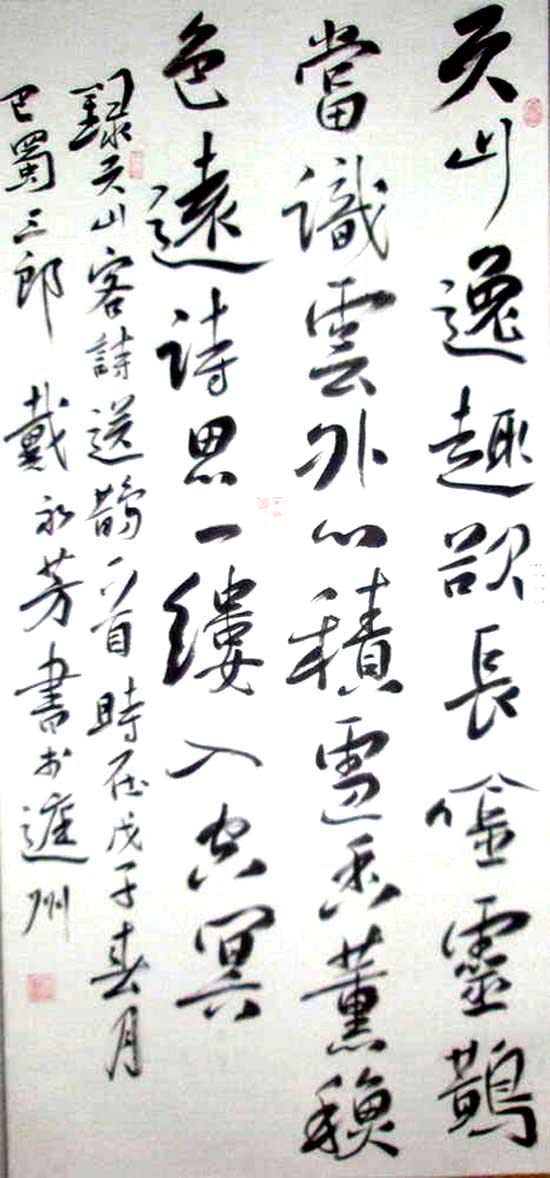 天山逸趣欲長唫靈鵲
當識雲外心積雪香薰
色遠詩思一縷入空冥
録天山客詩送鵲首時在戊子春月
巴蜀三郎 戴永芳書於州